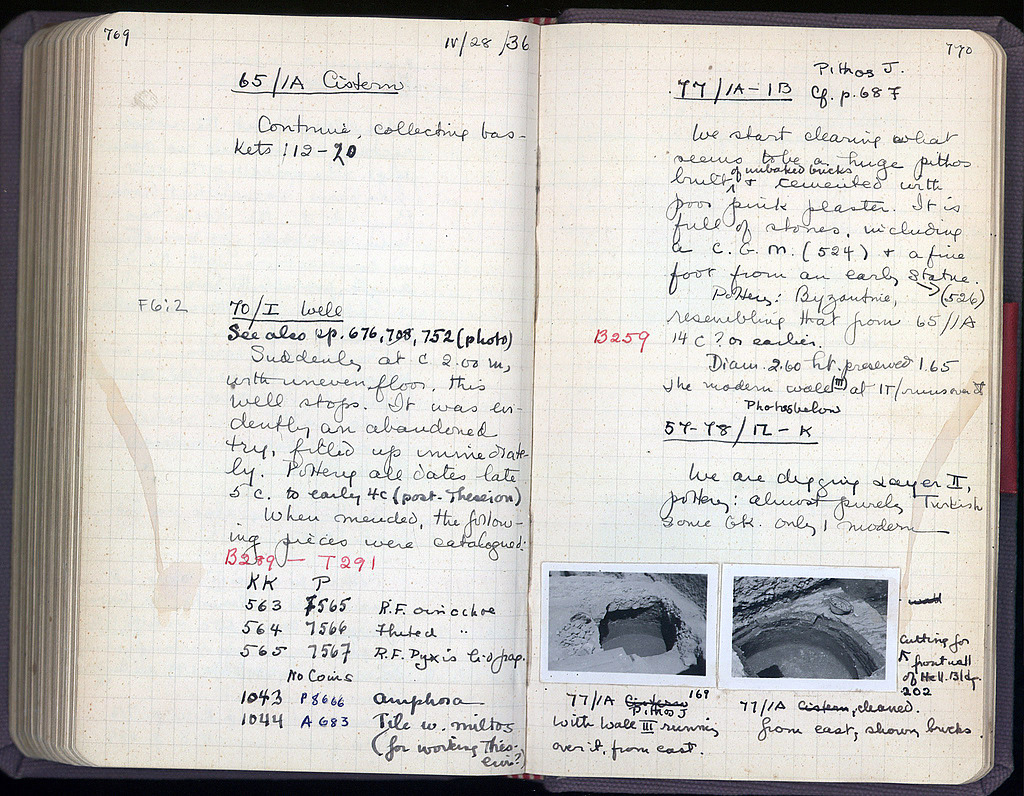 769
IV/28/36
65/1A Cistern
Continue, collecting bas-
kets 112-20
F6:2
70/I Well
See also pp. 676, 708, 752 (photo)
Suddenly at c 2.00 m,
with uneven floor, this
well stops. It was evi-
dently an abandoned
try, filled up immediate-
ly. Pottery all dates late
5 c. to early 4c (post-Theseion)
When mended, the follow-
ing pieces were catalogued:
B289 - T291
KK P
563 7565 R.F. oinochoe
564 7566 Fluted "
565 7567 R.F. Pyxis lid frag.
No Coins
1043 P8666 amphora
1044 A683 Tile w. miltos
(for working Thes-
eion?)
770
Pithos J.
77/1A-1B Cf. p. 687
We start clearing what
seems to be a huge pithos
of unbaked bricks
built & cemented with
poor pink plaster. It is
full of stones, including
a C.G.M. (524) & a fine
foot from an early statue.
(526)
Pottery: Byzantine,
resembling that from 65/1A
B259
14 c? or earlier.
Diam. 2.60 ht. preserved 1.65
The modern wall III at 1T/runs over it
Photos below
57-78/ - K
We are digging Layer II,
pottery: almost purely Turkish
some Gk. only 1 modern
wall
cutting for
front wall
of Hell. Bldg.
202
77/1A Cistern 169
Pithos J
with Wall III running
over it, from east.
77/1A Cistern, cleaned.
from east, shows bricks